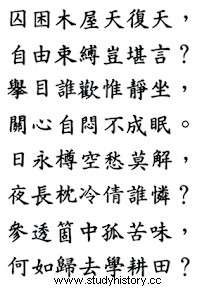 囚困木屋天復天，
自由束縛豈堪言？
舉目誰歡惟靜坐，
關心自悶不成眠。
日永樽空愁莫解，
夜長枕冷倩誰憐？
參透箇中孤苦味，
何如歸去學耕田？
www.studyhistory.cc